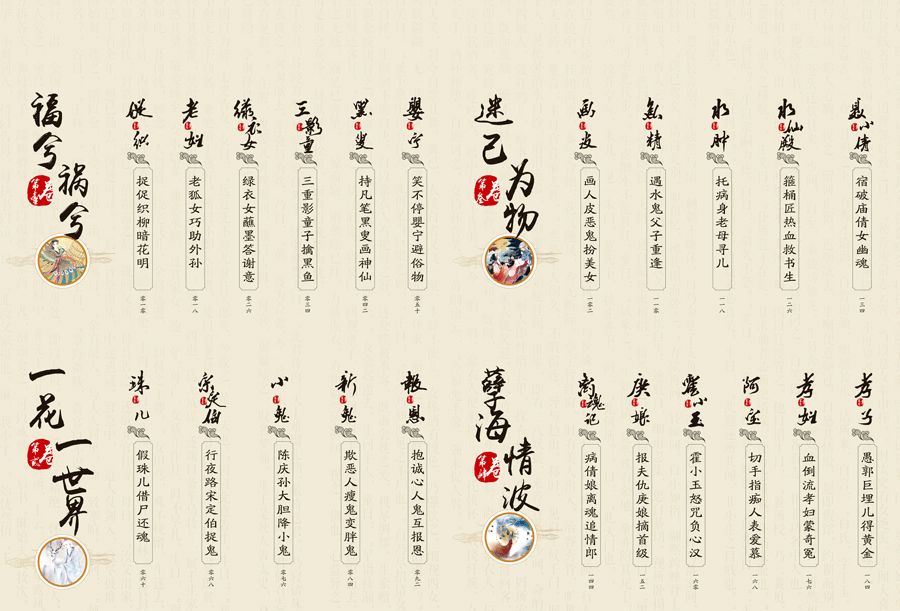 福兮
祸兮
卷
第壹
促织
捉促织柳暗花明
零一零
老妪
老狐女巧助外孙
零一八
绿衣女
绿衣女蘸墨答谢意
零二六
三影童
三重影童子擒黑鱼
零三四
黑叟
持凡笔黑叟画神仙
零四二
婴宁
笑不停婴宁避俗物
零五十
迷己
为物
卷
第叁
画皮
画人皮恶鬼扮美女
一零二
鱼精
遇水鬼父子重逢
一一零
水肿
托病身老母寻儿
一一八
水仙殿
箍桶匠热血救书生
一二六
聂小倩
宿破庙倩女幽魂
一三四
一花
一世界
卷
第贰
珠儿
假珠儿借尸还魂
零六十
宗定伯
行夜路宋定伯捉鬼
零六八
小鬼
陈庆孙大胆降小鬼
零七六
新鬼
欺恶人瘦鬼变胖鬼
零八四
报恩
抱诚心人鬼互报恩
零九二
孽海
情波
卷
第肆
离魂记
病倩娘离魂追情郎
一四四
庚娘
报夫仇庚娘摘首级
一五二
霍小玉
霍小玉怒咒负心汉
一六零
阿宝
切手指痴人表爱慕
一六八
孝妇
血倒流孝妇蒙奇冤
一七六
孝子
愚郭巨埋儿得黄金
一八四